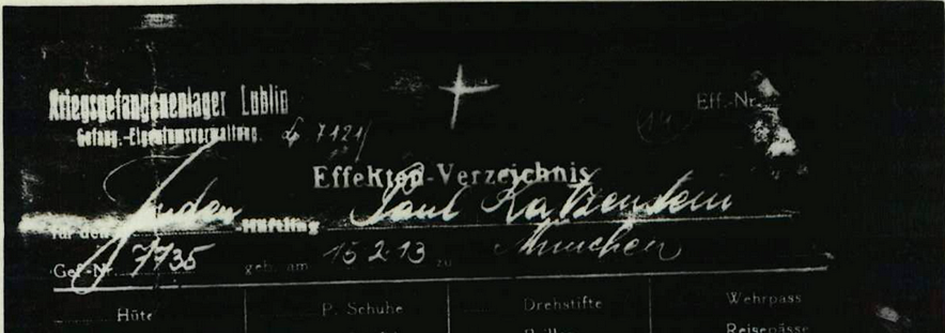 Kriegsgefangenenlager Lublin
Gefang.-Eigentumsverwaltung. 7121
Eff.-Nr.
Effekten-Verzeichnis
für den Juden -Häftling Paul Katzenstein
Gef.-Nr. 7735 geb. am 15.2.13 zu München
Hüte P. Schuhe Drehstifte Wehrpass
Reisepässe